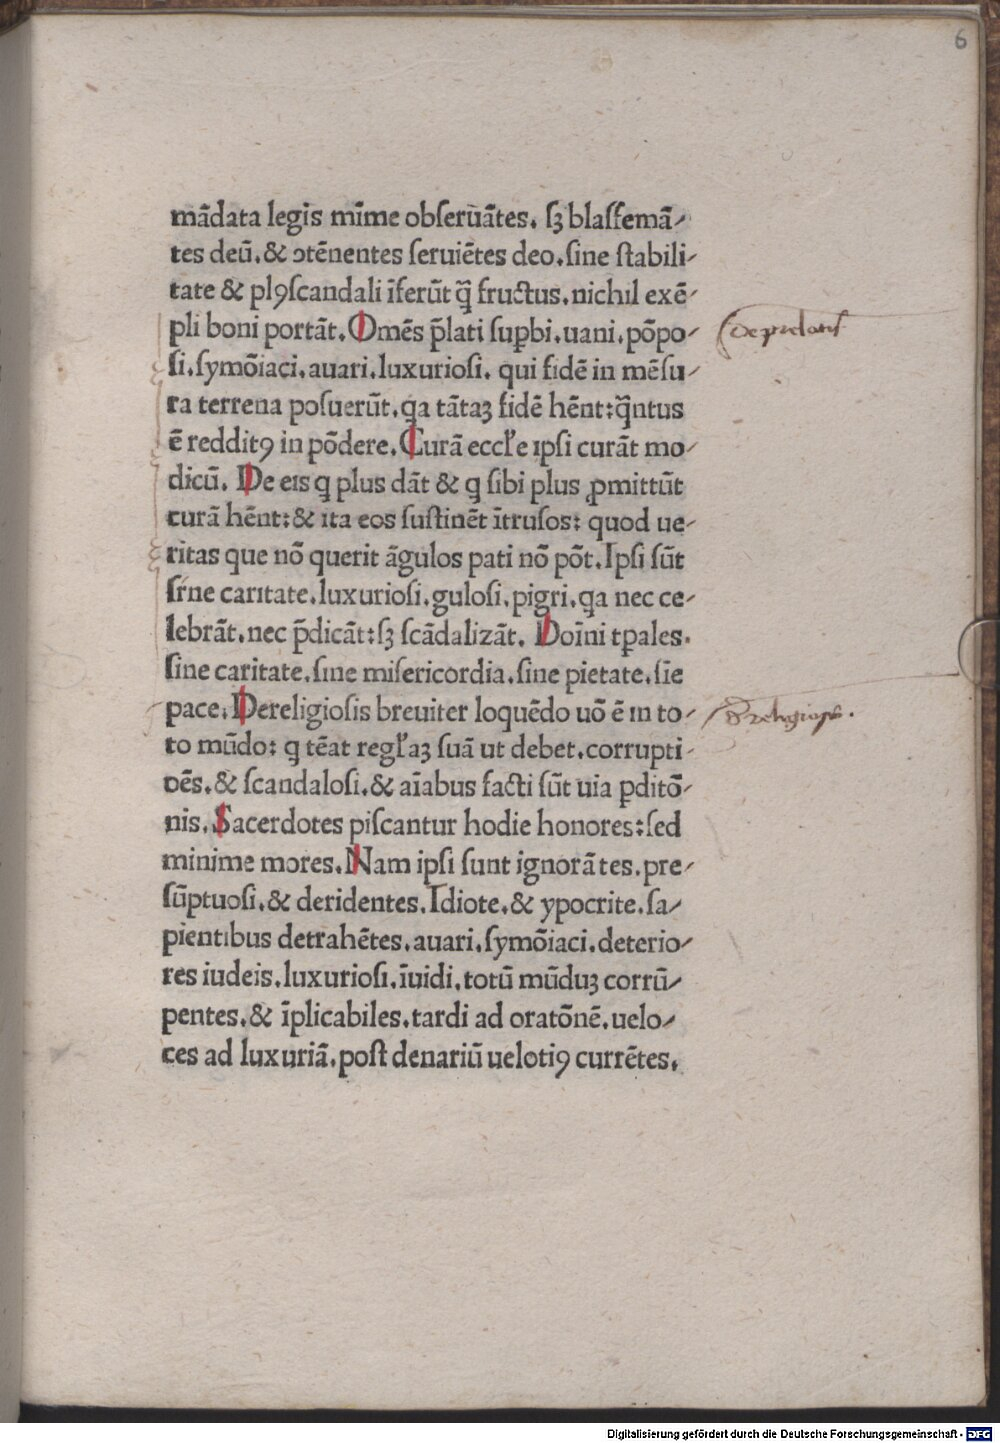 6
mādata legis mīme obſeruātes. ſꝫ blasfemā⸗
tes deū. & ↄtēnentes ſeruiētes deo. ſine ſtabili⸗
tate & plꝰ ſcandali īferūt q̄̃ fructus. nichil exē⸗
pli boni portāt. Omēs p̄lati ſuꝑbi. uani. pōpo⸗
ſi. ſymōiaci. auari. luxurioſi. qui fidē in mēſu⸗
ra terrena poſuerūt. qa tātaꝫ fidē hēnt: q̄̃ntus
ē redditꝰ in pōdere. Curā eccl'e ıpſi curāt mo⸗
dicū. De eıs q plus dāt & q ſibi plus ꝓmittūt
curā hēnt: & ıta eos ſuſtinēt ītruſos: quod ue⸗
ritas que nō querit āgulos pati nō pōt. Ipſi ſūt
ſine carıtate. luxurioſi. guloſi. pigri. qa nec ce⸗
lebrāt. nec p̄dicāt: ſꝫ ſcādalizāt. Doīni tꝑales.
ſine caritate. ſine miſericordia. ſine pietate. ſīe
pace. Dereligioſis breuiter loquēdo uō ē ın to⸗
to mūdo: q tēat regl'aꝫ ſuā ut debet. corrupti⸗
oēs. & ſcandaloſi. & aīabus facti ſūt uia ꝑditō⸗
nis. Sacerdotes piſcantur hodie honores: ſed
minime mores. Nam ipſi ſunt ignorātes. pre⸗
ſūptuoſi. & deridentes. Idiote. & ypocrite. ſa⸗
pientıbus detrahētes. auari. ſymōiaci. deterio⸗
res iudeis. luxurioſi. īuidi. totū mūduꝫ corrū⸗
pentes. & īplicabiles. tardi ad oratōnē. uelo⸗
ces ad luxuriā. poſt denariū uelotiꝰ currētes.
de prelatis
De religiosis.
Digitalisierung gefördert durch die Deutsche Forschungsgemeinschaft - DFG